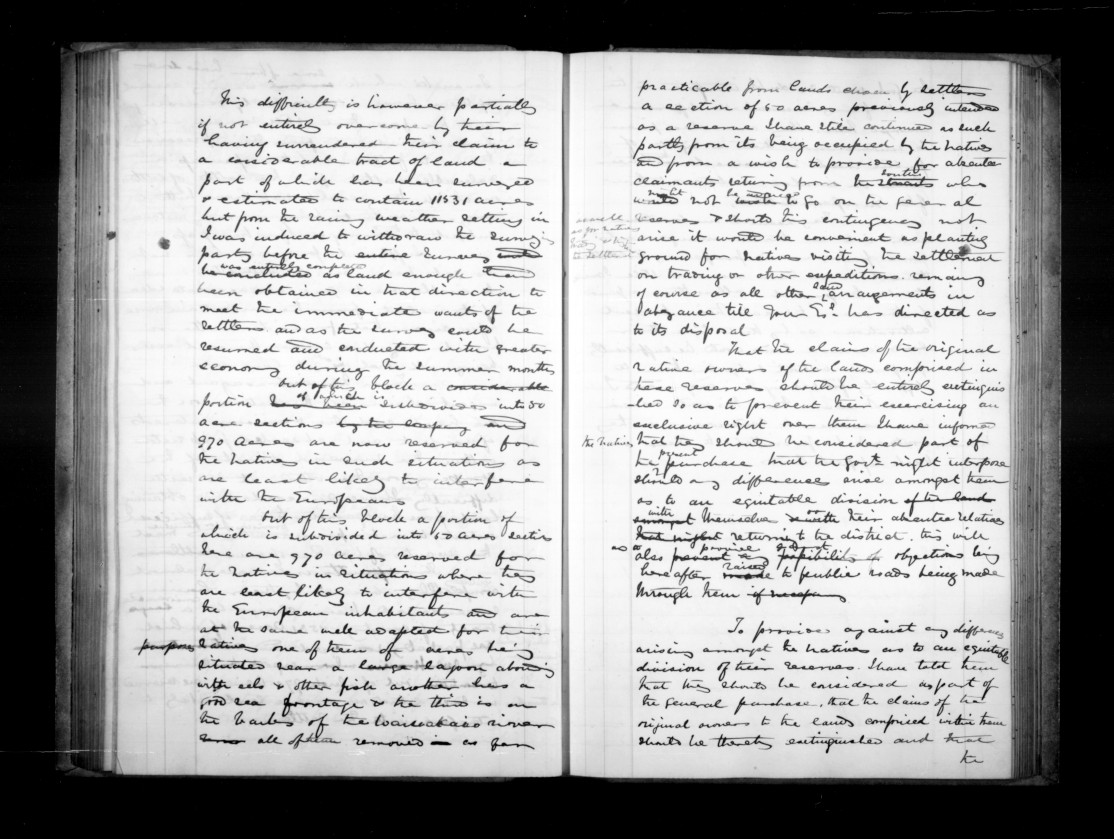 This difficulty is however partially
if not entirely overcome by their
having surrendered their claim to
a considerable tract of land a
part of which has been surveyed
& estimated to contain 11531 acres
but from the rainy weather setting in
I was induced to withdraw the surveying
party before the entire survey
was entirely completed
be concluded as land enough had
been obtained in that direction to
meet the immediate wants of the
settlers and as the survey could be
resumed and conducted with greater
economy during the summer months
out of this block a considerable
of which is
portion has been subdivided into 50
acre sections by the Company and
970 acres are now reserved for
the natives in such situations as
are least likely to interfere
with the Europeans
Out of this block a portion of
which is subdivided into 50 acre sections
there are 970 acres reserved for
the natives in situations where they
are least likely to interfere with
the European inhabitants and are
at the same well adapted for their
purposes natives one of them of acres being
situated near a large lagoon abounding
with eels & other fish another has a
good sea frontage & the third is on
the banks of the river
all of them removed as far
practicable from lands chosen by settlers
a section of 50 acres previously intended
as a reserve I have still continued as such
partly from its being occupied by the natives
and from a wish to provide for absentee
claimants returning from the who
might
would not to go on the general
reserves & should this contingency not
arise it would be convenient as planting
ground for natives visiting the settlement
on trading or other expeditions. remaining
land
of course as all other arrangements in
abeyance till Your Exy. has directed as
to its disposal
That the claims of the original
native owners of the lands comprised in
these reserves should be entirely extinguis
-hed so as to prevent their exercising an
exclusive right over them I have informed
the natives that they should be considered part of
the purchase that the Govt. might interpose
prevent
should any differences arise amongst them
as to an equitable division of the land
with
amongst themselves or with their absentee relatives
that might returning to the district. this will
also prevent any possibility of objections being
raised
hereafter made to public roads being made
through them if necessary
To provide against any differences
arising amongst the natives as to an equitable
division of their reserves. I have told them
that they should be considered as part of
the general purchase, that the claims of the
original owners to the lands comprised within them
should be thereby extinguished and that
the